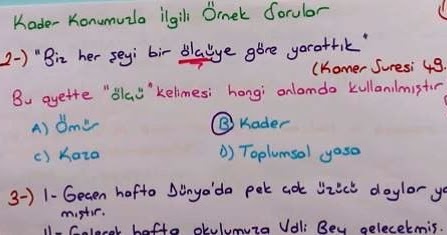 Kader Konumuzla İlgili Örnek Sorular
2-) "Biz her şeyi bir ölçüye göre yarattık"
(Kamer Suresi 49.
Bu ayette "ölçü" kelimesi hangi anlamda kullanılmıştır
A) Ömür
B) Kader
C) Kaza
D) Toplumsal yasa
3-) I- Geçen hafta Dünya'da pek çok üzücü olaylar ya
mıştır.
II- Gelecek hafta okulumuza Vali Bey gelecekmiş.